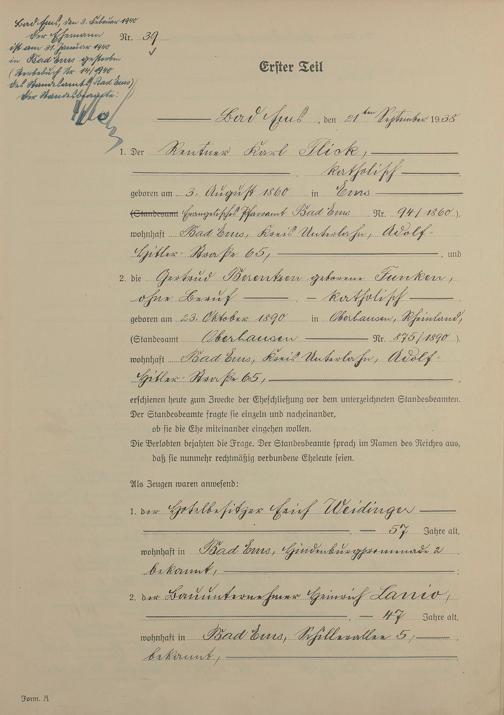 Bad Ems, den 3. Februar 1940
Der Ehemann
ist am 31. Januar 1940
in Bad Ems gestorben
(Sterbebuch Nr. 14/1940
des Standesamts Bad Ems)
Der Standesbeamte:
Nr. 39
Erster Teil
Bad Ems, den 21ten September 1938
1. Der Rentner Karl Flick,
katholisch
geboren am 3. August 1860 in Ems
(Standesamt Evangelisches Pfarramt Bad Ems Nr. 94/1860),
wohnhaft Bad Ems, Kreis Unterlahn, Adolf-
Hitler-Straße 65, und
2. die Gertrud Berentzen geborene Funken,
ohne Beruf – katholisch
geboren am 23. Oktober 1890 in Oberhausen, Rheinland,
(Standesamt Oberhausen Nr. 875/1890)
wohnhaft Bad Ems, Kreis Unterlahn, Adolf-
Hitler-Straße 65,
erschienen heute zum Zwecke der Eheschließung vor dem unterzeichneten Standesbeamten.
Der Standesbeamte fragte sie einzeln und nacheinander,
ob sie die Ehe miteinander eingehen wollen.
Die Verlobten bejahten die Frage. Der Standesbeamte sprach im Namen des Reiches aus,
daß sie nunmehr rechtmäßig verbundene Eheleute seien.
Als Zeugen waren anwesend:
1. der Hotelbesitzer Erich Weidinger
57 Jahre alt,
wohnhaft in Bad Ems, Hindenburgpromenade 2
bekannt,
2. der Bauunternehmer Heinrich Lanio,
47 Jahre alt,
wohnhaft in Bad Ems, Schillerallee 5,
bekannt,
Form. A